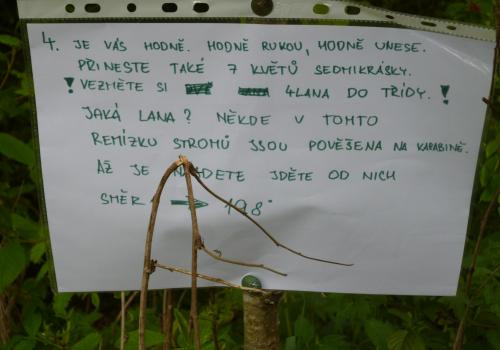 4. JE VÁS HODNĚ. HODNĚ RUKOU, HODNĚ UNESE.
PŘINESTE TAKÉ 7 KVĚTŮ SEDMIKRÁSKY.
! VEZMĚTE SI 4 LANA DO TŘÍDY. !
JAKÁ LANA? NĚKDE V TOMTO
REMÍZKU STROMŮ JSOU POVĚŠENA NA KARABINĚ.
AŽ JE NAJDETE JDĚTE OD NICH
SMĚR → 198°